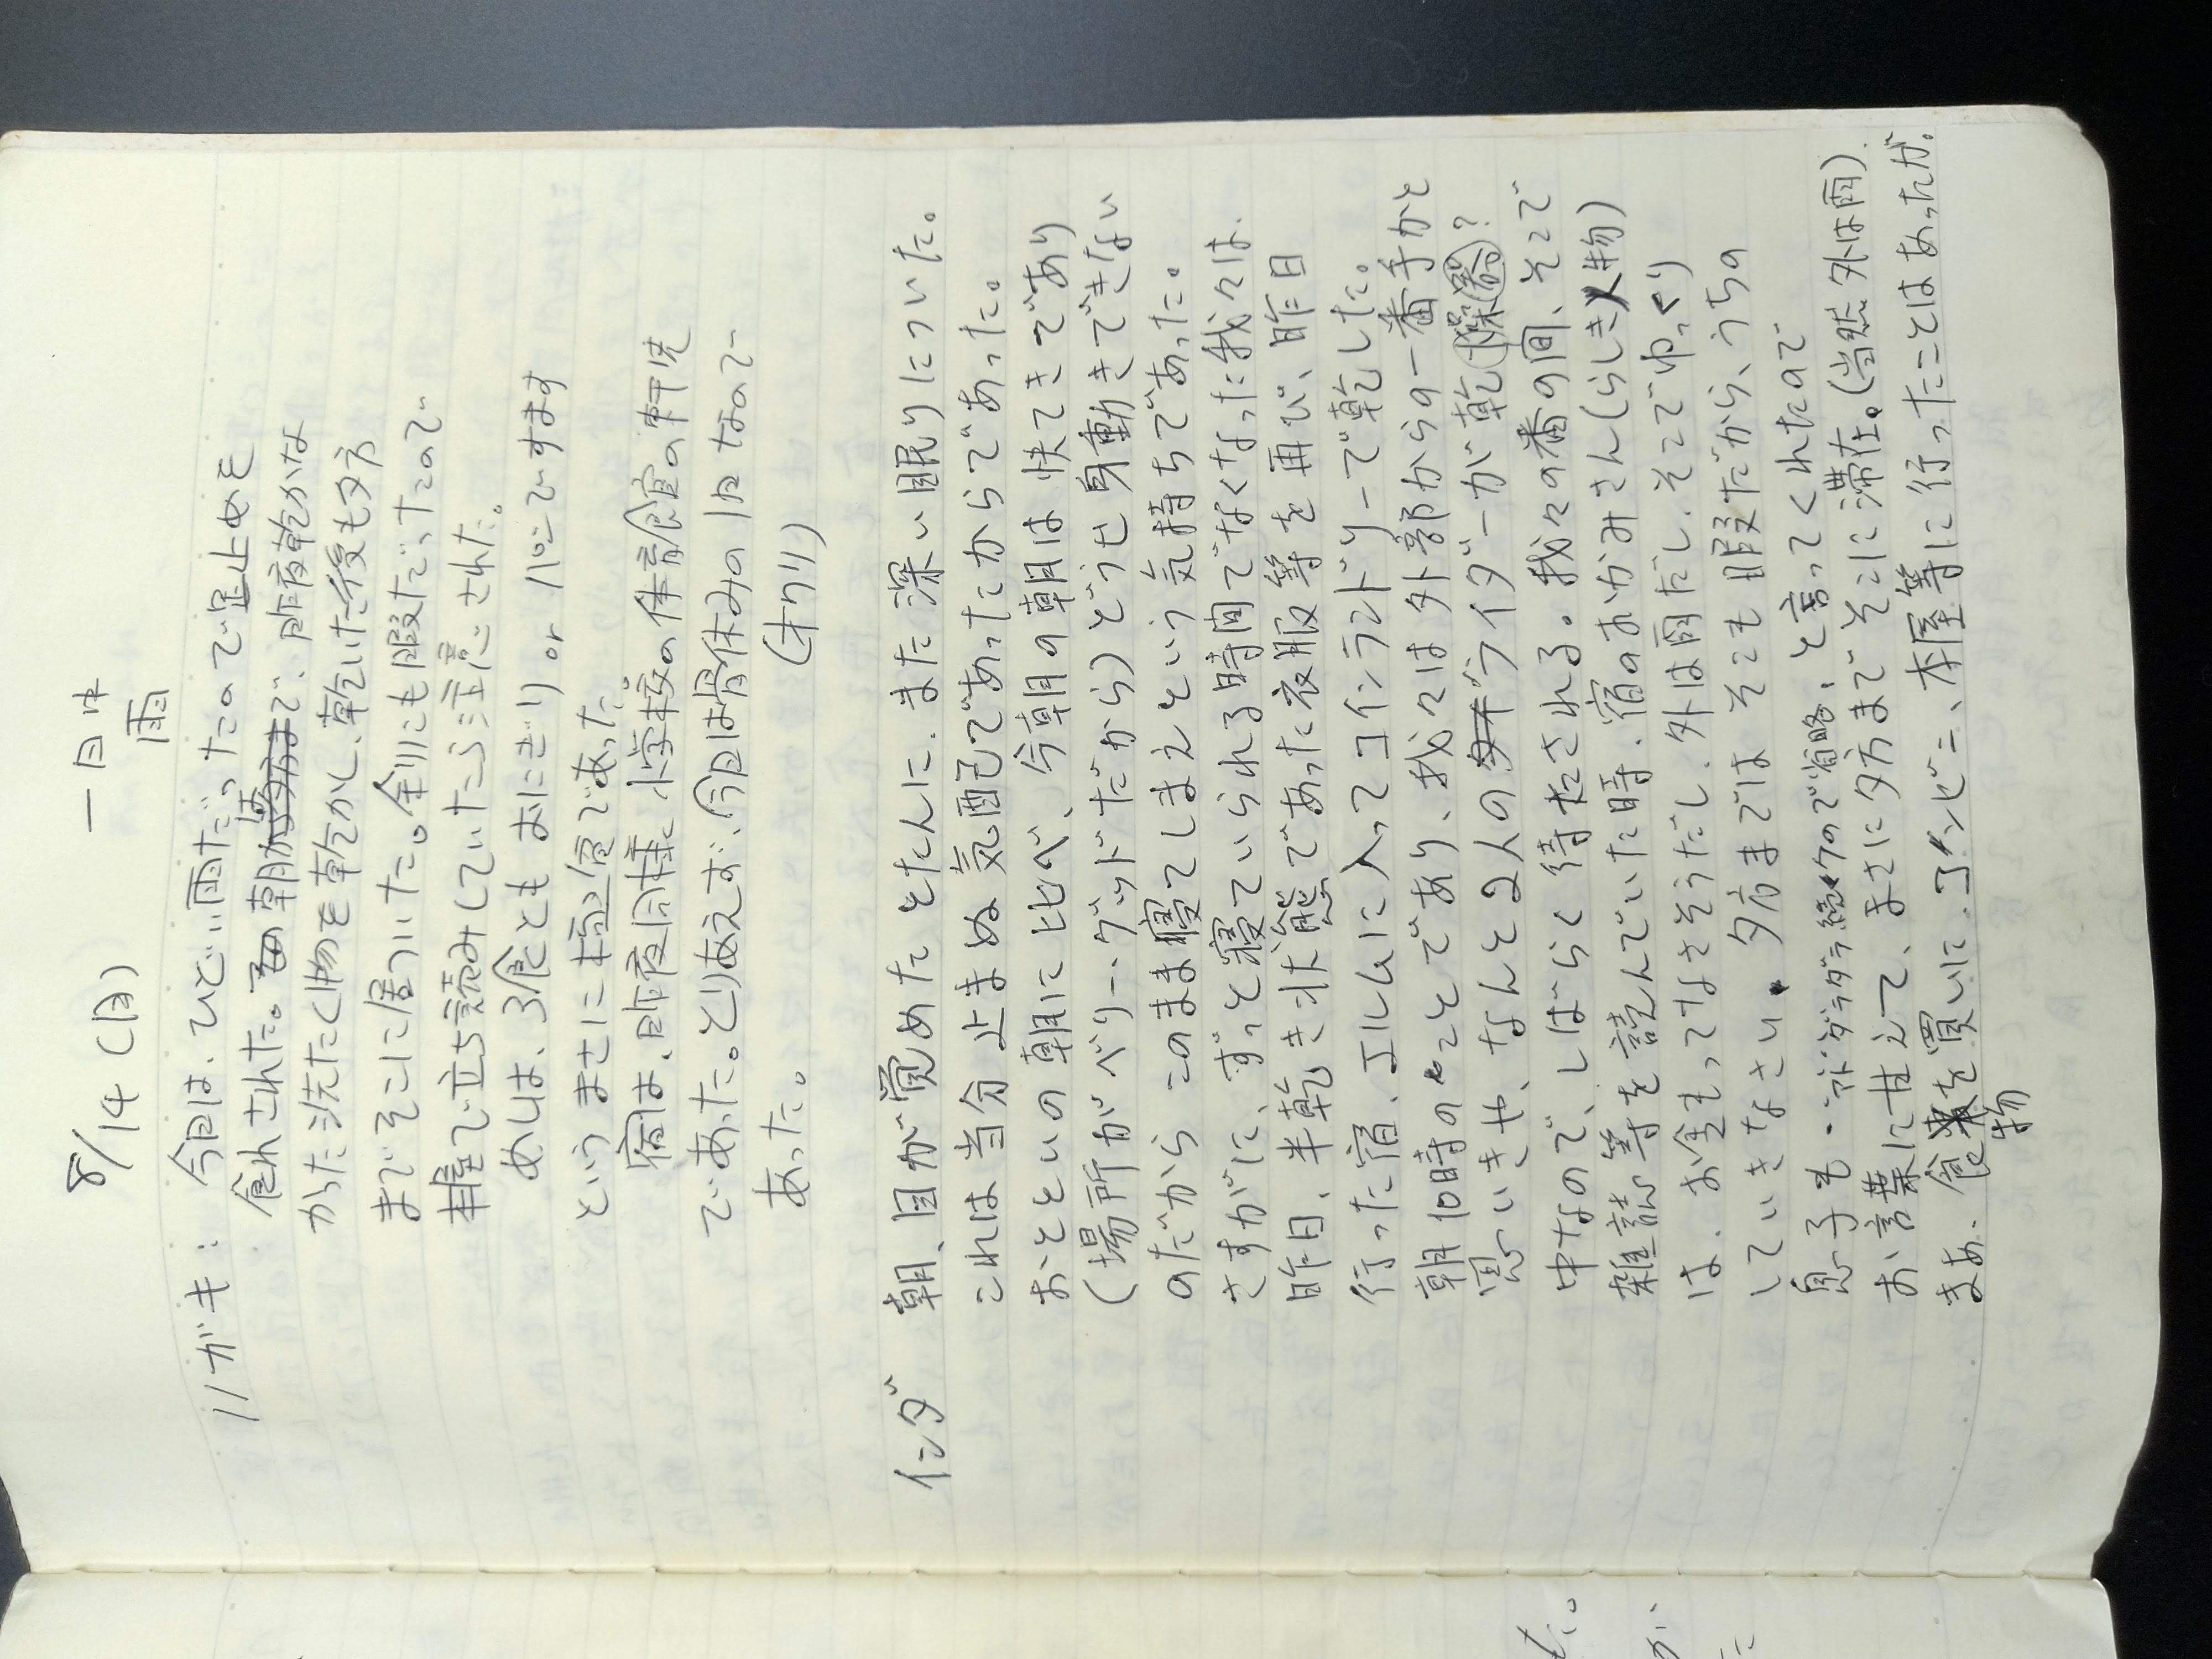 8/14(日) 一日中
雨
ハガキ: 今日は、ひどい雨だったので足止めを
食わされた。朝から、昨夜乾かな
かった洗たく物を乾かし、乾いた後も夕方
までそこに居ついた。余りにも暇だったので
本屋で立ち読みしていたら注意された。
めしは、3食ともおにぎり or パンですます
というまさに極限であった
宿は、昨夜同様に小学校の体育館の軒先
であった。とりあえず、今日は骨休みの1日なので
あった。 (オワリ)
インダ 朝、目が覚めたとたんに、また深い眠りについた。
これは当分止まぬ気配であったからであった。
おとといの朝に比べ、今朝の朝は快てきであり
(場所がベリーグッドだから)どうせ身動きできない
のだからこのまま寝てしまえという気持ちであった。
さすがに、ずっと寝ていられる時間でなくなった我々は、
昨日、半乾き状態であった衣服等を再び、昨日
行った宿、エルムに入ってコインランドリーで乾した。
朝10時のことであり、我々は外部からの一番手かと
思いきや、なんと2人のライダーが乾燥器?
中なので、しばらく待たされる。我々の番の間、そこで
雑誌等を読んでいた時、宿のおかみさん(らしき人物)
は、お金もってなさそうだし、外は雨だし、そこでゆっくり
していきなさい。夕方まではそこも暇だから、うちの
息子も・・・ドダラダラ続くので省略、と言ってくれたので
お言葉に甘えて、まさに夕方までそこに滞在。(当然外は雨)
まあ、食物を買いに、コンビニ、本屋等に行ったことはあったが。